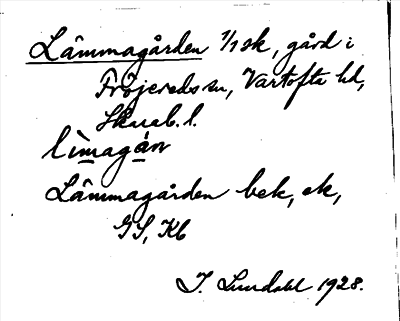 Lâmmagården 1/1 sk, gård i
Fröjereds sn, Vartofta hd,
Skarab. l.
lìmagá̱n
Lâmmagården bek, ek,
GS, Kb
I. Lundahl 1928.